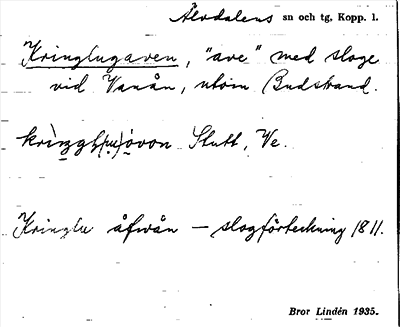 Älvdalens sn och tg, Kopp. l.
Kringlugaven, "ave" med sloge
vid Vanån, utom Budstrand.
Slutt, Ve.
Kringlu åfwån — slogförteckning 1811.
Bror Lindén 1935.